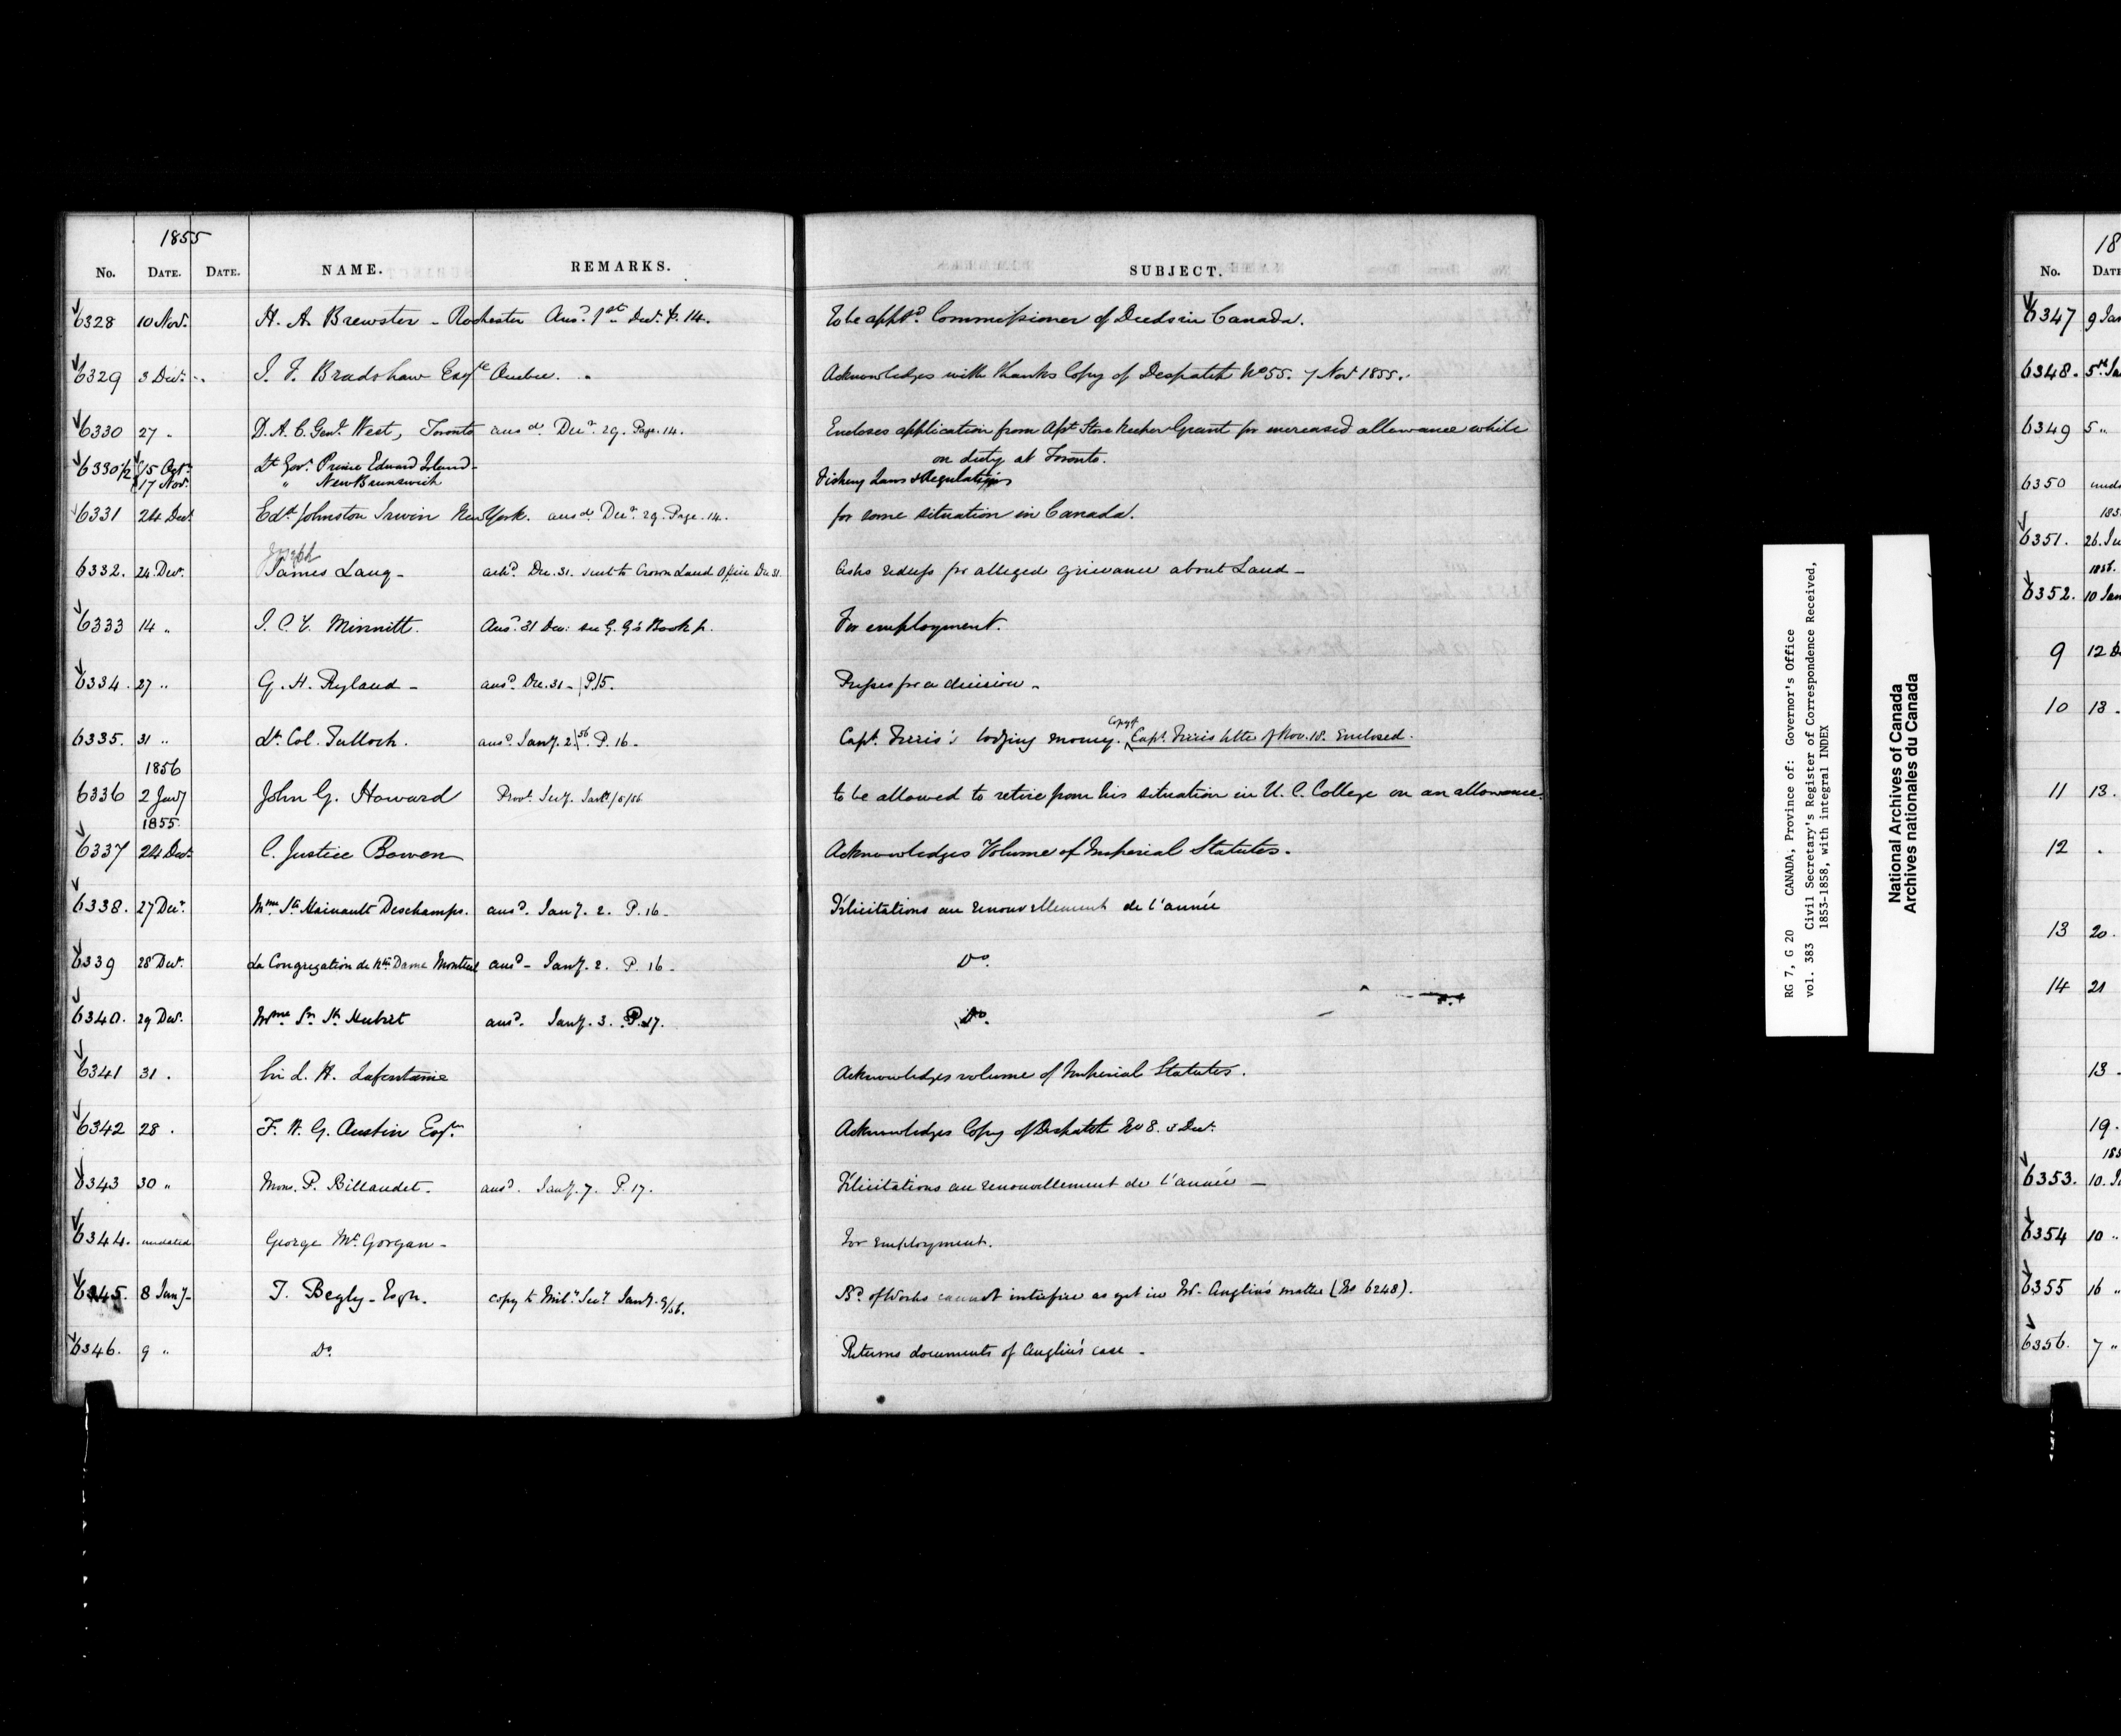 1855
No. DATE. DATE. NAME. REMARKS. SUBJECT.
6328 10 Nov. H. A. Brewster - Rochester Ansd. 1st Decr. P. 14. To be apptd. Commissioner of Deeds in Canada.
6329 3 Decr. J. F. Bradshaw Esqre Quebec. Acknowledges with thanks Copy of Despatch No 55. 7 Novr 1855.
6330 27 " D. A. C. Genl. West, Toronto ansd. Decr. 29. Page. 14. Encloses application from Asst Store Keeper Grant for increased allowance while
on duty at Toronto.
6330 1/2 15 Octr. Lt Govr. Prince Edward Island -
17 Novr. " New Brunswick Fishery Laws & Regulations
6331 24 Decr. Edd. Johnston Irwin New York. ansd. Decr. 29. Page. 14. for some situation in Canada.
Joseph
6332. 24 Decr. James Lang - ackd. Dec. 31. sent to Crown Land Office Dec 31. Asks redress for alleged grievance about Land -
6333 14 " Minnitt. Ansd. 31 Dec: see G. G's Book p. For employment.
6334. 27 " G. H. Ryland - ansd. Dec. 31 - P. 15. Presses for a decision -
6335. 31 " Lt. Col. Tulloch. ansd. Jany. 2/56. P. 16 - Capt. lodging money. Copy of Capt. letter of Nov. 18. Enclosed.
1856
6336 2 Jany John G. Howard Provl. Secy. to be allowed to retire from his situation in U. C. College on an allowance.
1855
6337 24 Decr. C. Justice Bowen Acknowledges Volume of Imperial Statutes.
6338. 27 Decr. Mme Ste Mainault Deschamps. ansd. Jany. 2. P. 16 - Félicitations au renouvellement de l'année
6339 28 Decr. La Congregation de Ntre Dame Montreal ansd - Jany. 2. P. 16 - Do.
6340. 29 Decr. Mme Sr. St. Hubert ansd. Jany. 3. P. 17. Do.
6341 31 . Sir L. H. Lafontaine Acknowledges volume of Imperial Statutes.
6342 28 . F. W. G. Austin Esqre Acknowledges Copy of Despatch No 8. 3 Decr.
6343 30 " Mons. P. Billaudel. ansd. Jany. 7. P. 17. Félicitations au renouvellement de l'année -
6344. undated George Mc. Gorgan - For employment.
6345. 8 Jany - T. Begly - Esqre. copy to Mily. Secy. Jany. 9/56. Bd. of Works cannot interfere as yet in Mr. Anglin's matter (No 6248).
6346. 9 " Do. Returns documents of Anglin's case -
RG 7, G 20 CANADA, Province of: Governor's Office
vol. 383 Civil Secretary's Register of Correspondence Received,
1853-1858, with integral INDEX
National Archives of Canada
Archives nationales du Canada
18
No. DATE
6347 9 Jan
6348. 5
6349 5 "
6350
185
6351. 26.
1856.
6352. 10 Jan
9 12 D
10 13
11 13.
12
13 20.
14 21
13 -
19.
185
6353. 10.
6354 10 "
6355 16 "
6356. 7 "